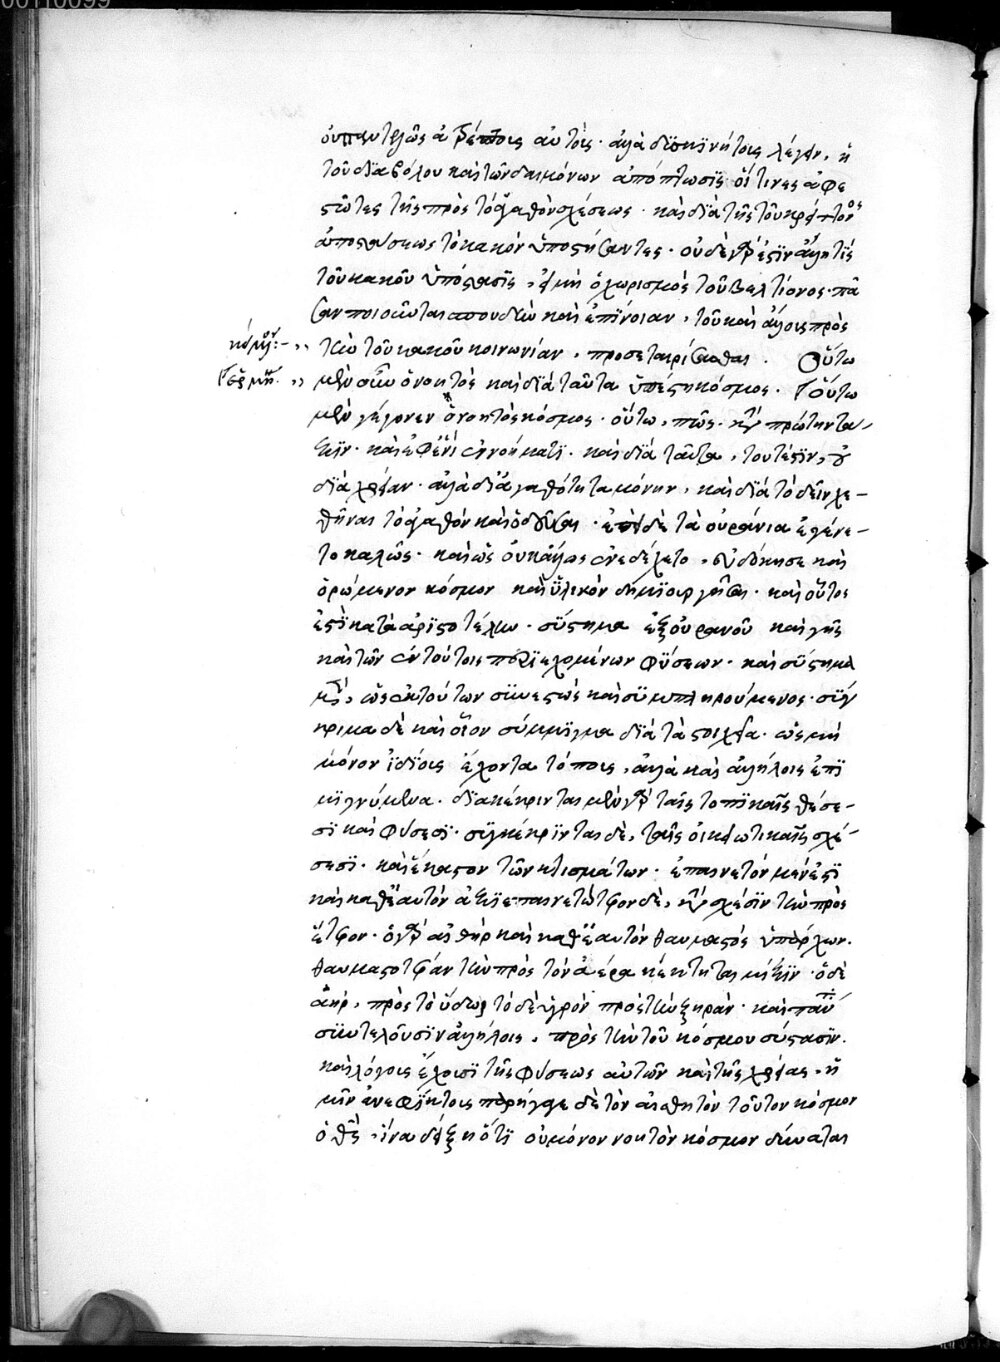 00110099
οὐ παντελῶς ἀτρέπτοις αὐτοῖς· ἀλλὰ δυσκινήτοις λέγειν, ἡ
τοῦ διαβόλου καὶ τῶν δαιμόνων ἀπόπτωσις οἵ τινες ἀφε
στῶτες τῆς πρὸς τὸ ἀγαθὸν σχέσεως· καὶ διὰ τῆς τοῦ κρείττονος
ἀποστάσεως τὸ κακὸν ὑποστήσαντες· οὐδὲ γάρ ἐστιν ἄλλη τὶς
τοῦ κακοῦ ὑπόστασις, εἰ μὴ ὁ χωρισμὸς τοῦ βελτίονος· πᾶ
σαν ποιοῦνται σπουδὴν καὶ ἐπίνοιαν, τοῦ καὶ ἄλλους πρὸς
τὴν τοῦ κακοῦ κοινωνίαν, προσεταιρίσασθαι. Οὕτω
κείμενον:- ,, μὲν οὖν ὁ νοητὸς καὶ διὰ ταῦτα ὑπέστη κόσμος. Οὕτω
ἑρμη. ,, μὲν γέγονεν ὁ νοητὸς κόσμος· οὕτω, πῶς· κατὰ πρώτην τά-
ξιν· καὶ ἐφ' ἑνὶ ἐννοήματι· καὶ διὰ ταῦτα, τουτέστιν, οὐ
διὰ χρείαν· ἀλλὰ δι' ἀγαθότητα μόνην, καὶ διὰ τὸ δεῖν χε-
θῆναι τὸ ἀγαθὸν καὶ ὁδεῦσαι· ἐπεὶ δὲ τὰ οὐράνια ἐγένε-
το καλῶς· καὶ ὡς οὐκ ἄλλως ἐνεδέχετο, εὐδόκησε καὶ
ὁρώμενον κόσμον καὶ ὑλικὸν δημιουργῆσαι· καὶ οὗτος
ἐστὶ κατὰ ἀριστοτέλην· σύστημα ἐξ οὐρανοῦ καὶ γῆς
καὶ τῶν ἐν τούτοις περιεχομένων φύσεων· καὶ σύστημα
μὲν, ὡς ἐκ τούτων συνεστὼς καὶ συμπληρούμενος· σύγ
κριμα δὲ καὶ οἷον σύμμιγμα διὰ τὰ στοιχεῖα· ὡς μὴ
μόνον ἰδίοις ἔχοντα τόποις, ἀλλὰ καὶ ἀλλήλοις ἐπι
μιγνύμενα· διακέκρινται μὲν γὰρ ταῖς τοπικαῖς θέσε-
σι καὶ φύσεσι· συγκέκρινται δὲ, ταῖς οἰκειωτικαῖς σχέ-
σεσι· καὶ ἕκαστον τῶν κτισμάτων· ἐπαινετὸν μέν ἐστι
καὶ καθ' ἑαυτὸν ἀξιεπαινετώτερον δὲ, κατὰ σχέσιν τὴν πρὸς
ἕτερον· ὁ γὰρ αἰθὴρ καὶ καθ' ἑαυτὸν θαυμαστὸς ὑπάρχων·
θαυμαστοτέραν τὴν πρὸς τὸν ἀέρα κέκτηται μίξιν· ὁ δὲ
ἀὴρ, πρὸς τὸ ὕδωρ τὸ δὲ ὑγρὸν πρὸς τὴν ξηράν· καὶ πάντα
συντελοῦσιν ἀλλήλοις, πρὸς τὴν τοῦ κόσμου σύστασιν·
καὶ λόγοις ἔχουσι τῆς φύσεως αὐτῶν καὶ τῆς χρείας, ἡ
μῖν ἀνεφίκτοις παρήγαγε δὲ τὸν αἰσθητὸν τοῦτον κόσμον
ὁ θεὸς, ἵνα δείξῃ ὅτι οὐ μόνον νοητὸν κόσμον δύναται